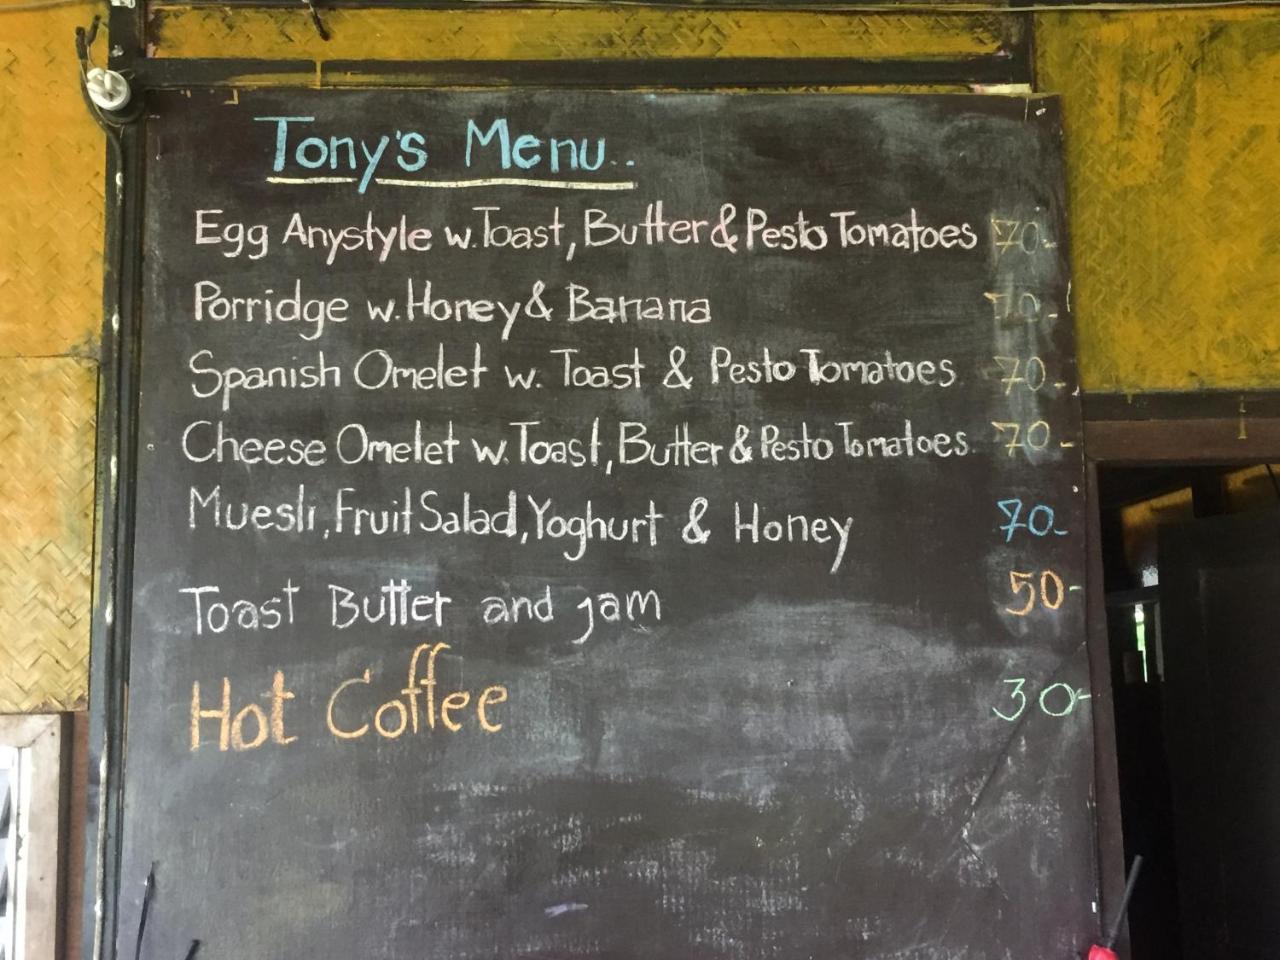 Tony's Menu..
Egg Anystyle w. Toast, Butter & Pesto Tomatoes 70-
Porridge w. Honey & Banana 70-
Spanish Omelet w. Toast & Pesto Tomatoes 70-
Cheese Omelet w. Toast, Butter & Pesto Tomatoes 70-
Muesli, Fruit Salad, Yoghurt & Honey 70-
Toast Butter and jam 50-
Hot Coffee 30-